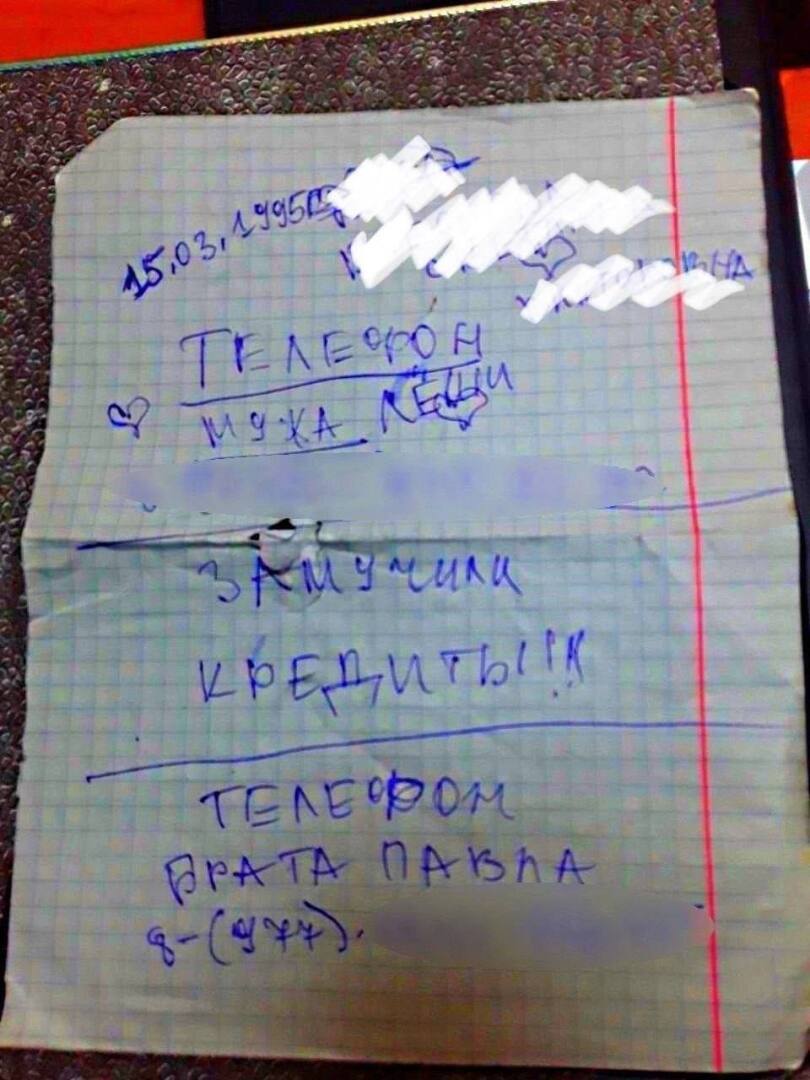 15.03.1995
ТЕЛЕФОН
МУЖА ЛЁШИ
ЗАМУЧИЛИ
КРЕДИТЫ!!!
ТЕЛЕФОН
БРАТА ПАВЛА
8-(977).